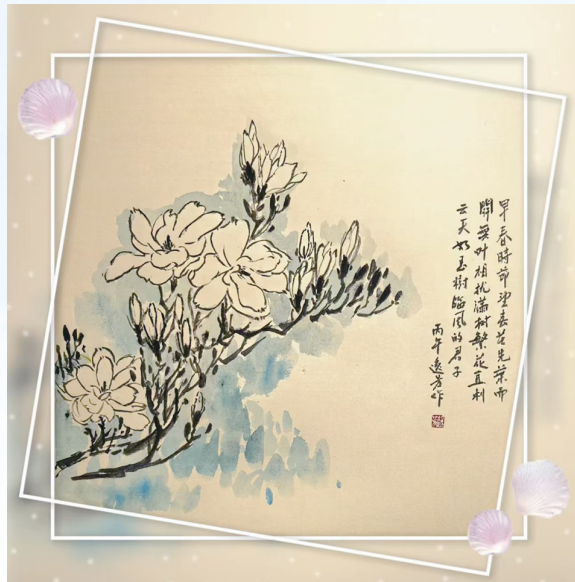 早春時節望春花先葉而
開無叶相扰滿树繁花直刺
云天如玉樹臨風的君子
丙午芳作